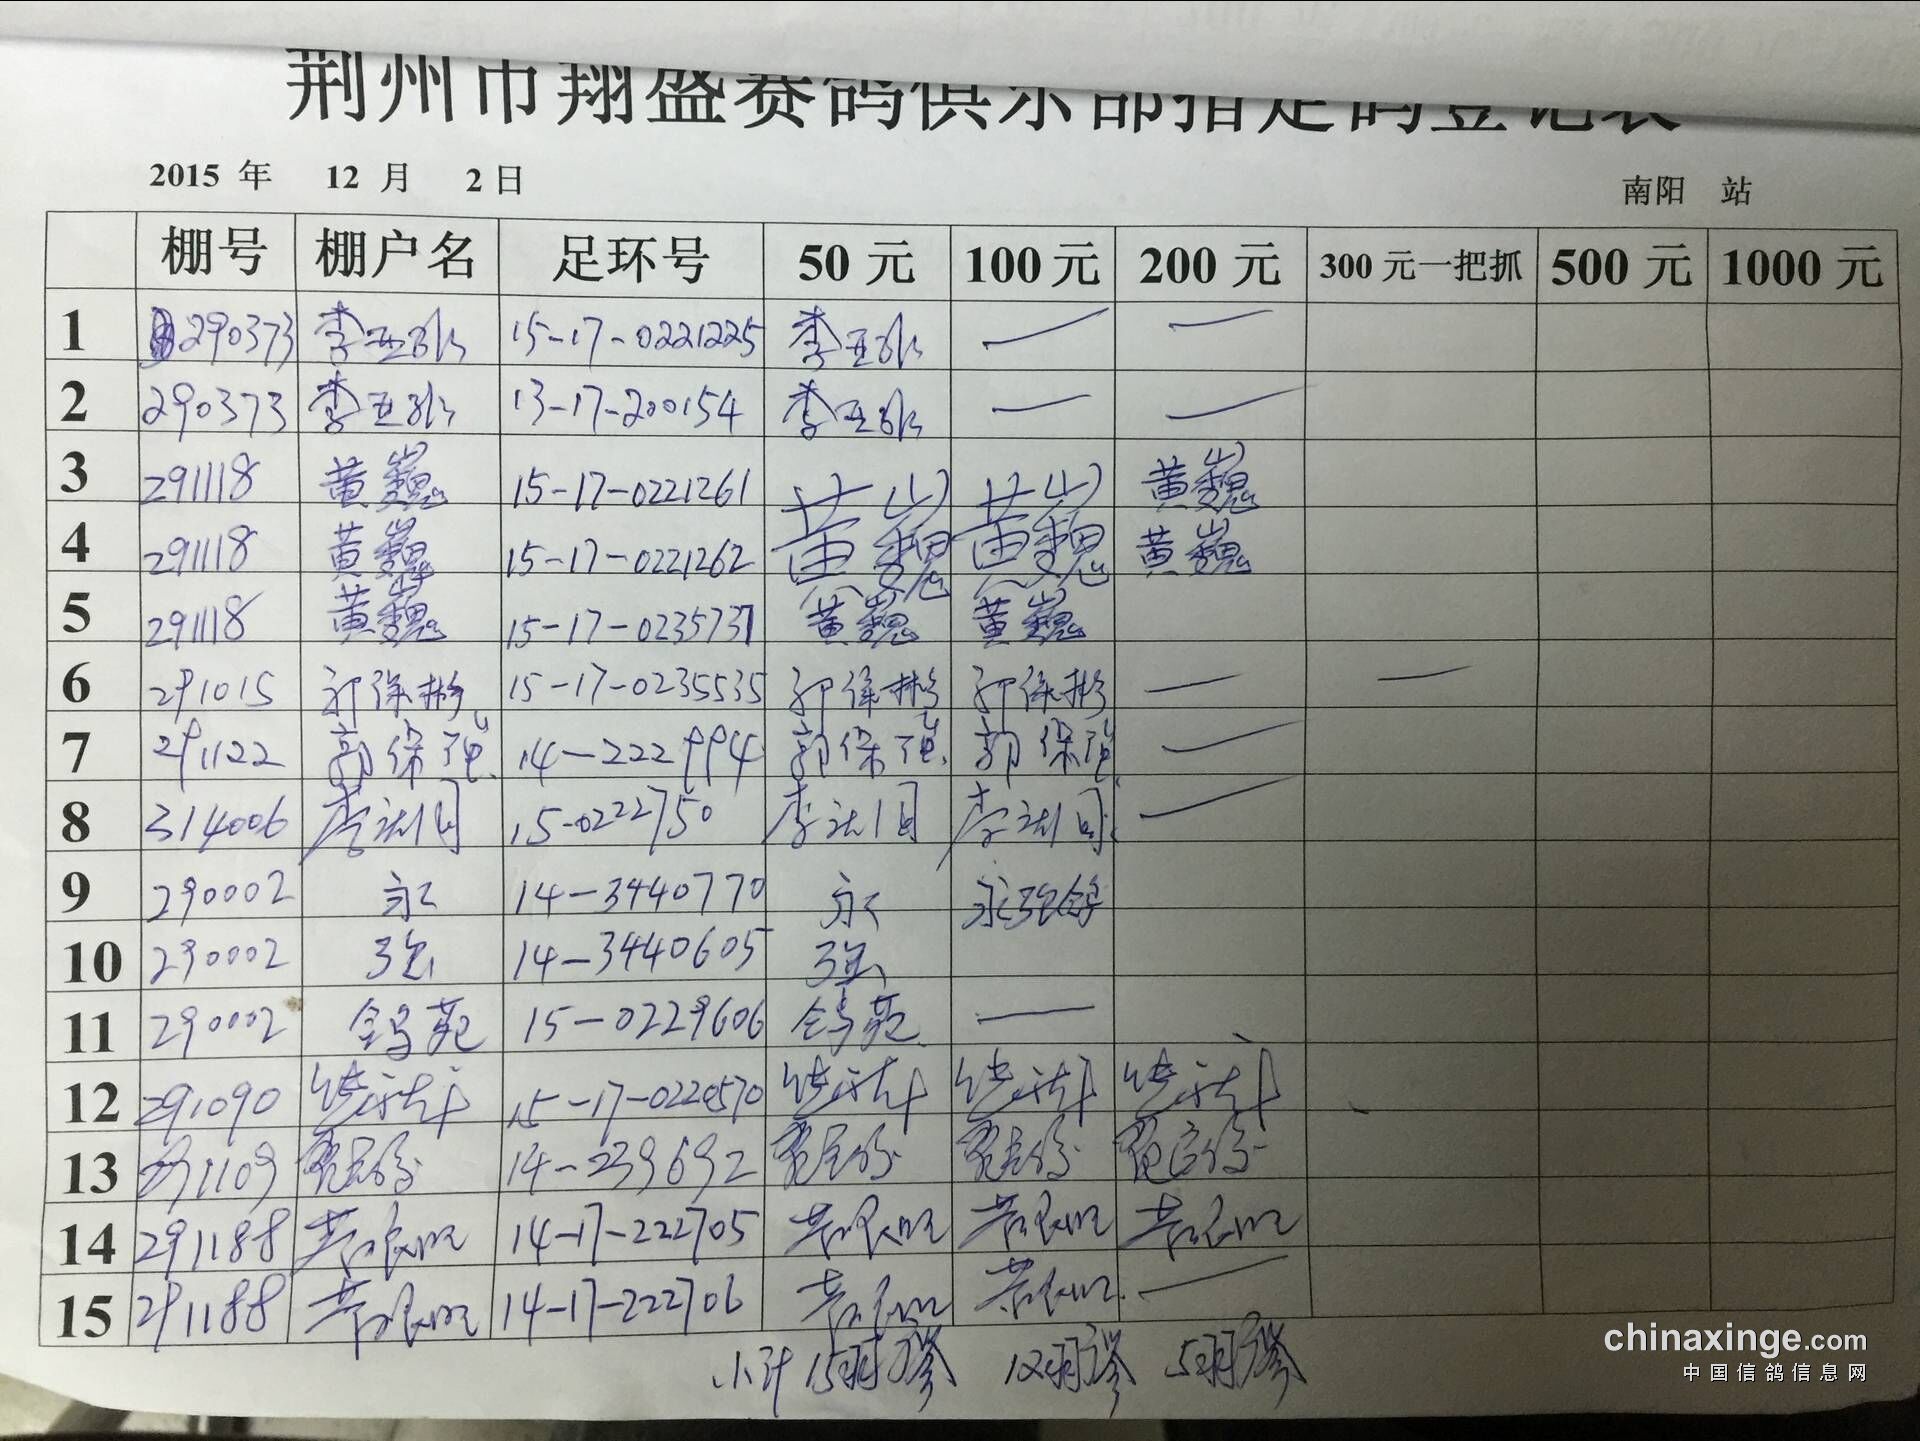 荆州市翔盛赛鸽俱乐部指定鸽登记表
2015 年 12 月 2 日 南阳 站
棚号 棚户名 足环号 50 元 100 元 200 元 300 元一把抓 500 元 1000 元
1 290373 李亚 15-17-0221225 李亚 — —
2 290373 李亚 13-17-200154 李亚 — —
3 291118 黄巍 15-17-0221261 黄巍 黄巍 黄巍
4 291118 黄巍 15-17-0221262 黄巍 黄巍 黄巍
5 291118 黄巍 15-17-0235737 黄巍 黄巍
6 291015 15-17-0235535 — —
7 291122 郭保 14-222994 郭保 郭保 —
8 314006 李 15-0222750 李 李 —
9 290002 永 14-3440770 永 永强鸽
10 290002 强 14-3440605 强
11 290002 鸽苑 15-0229606 鸽苑 —
12 291090 15-17-0220570
13 291109 14-239692
14 291188 14-17-222705
15 291188 14-17-222706 —
小计 15羽 12羽 5羽
chinaxinge.com
中国信鸽信息网